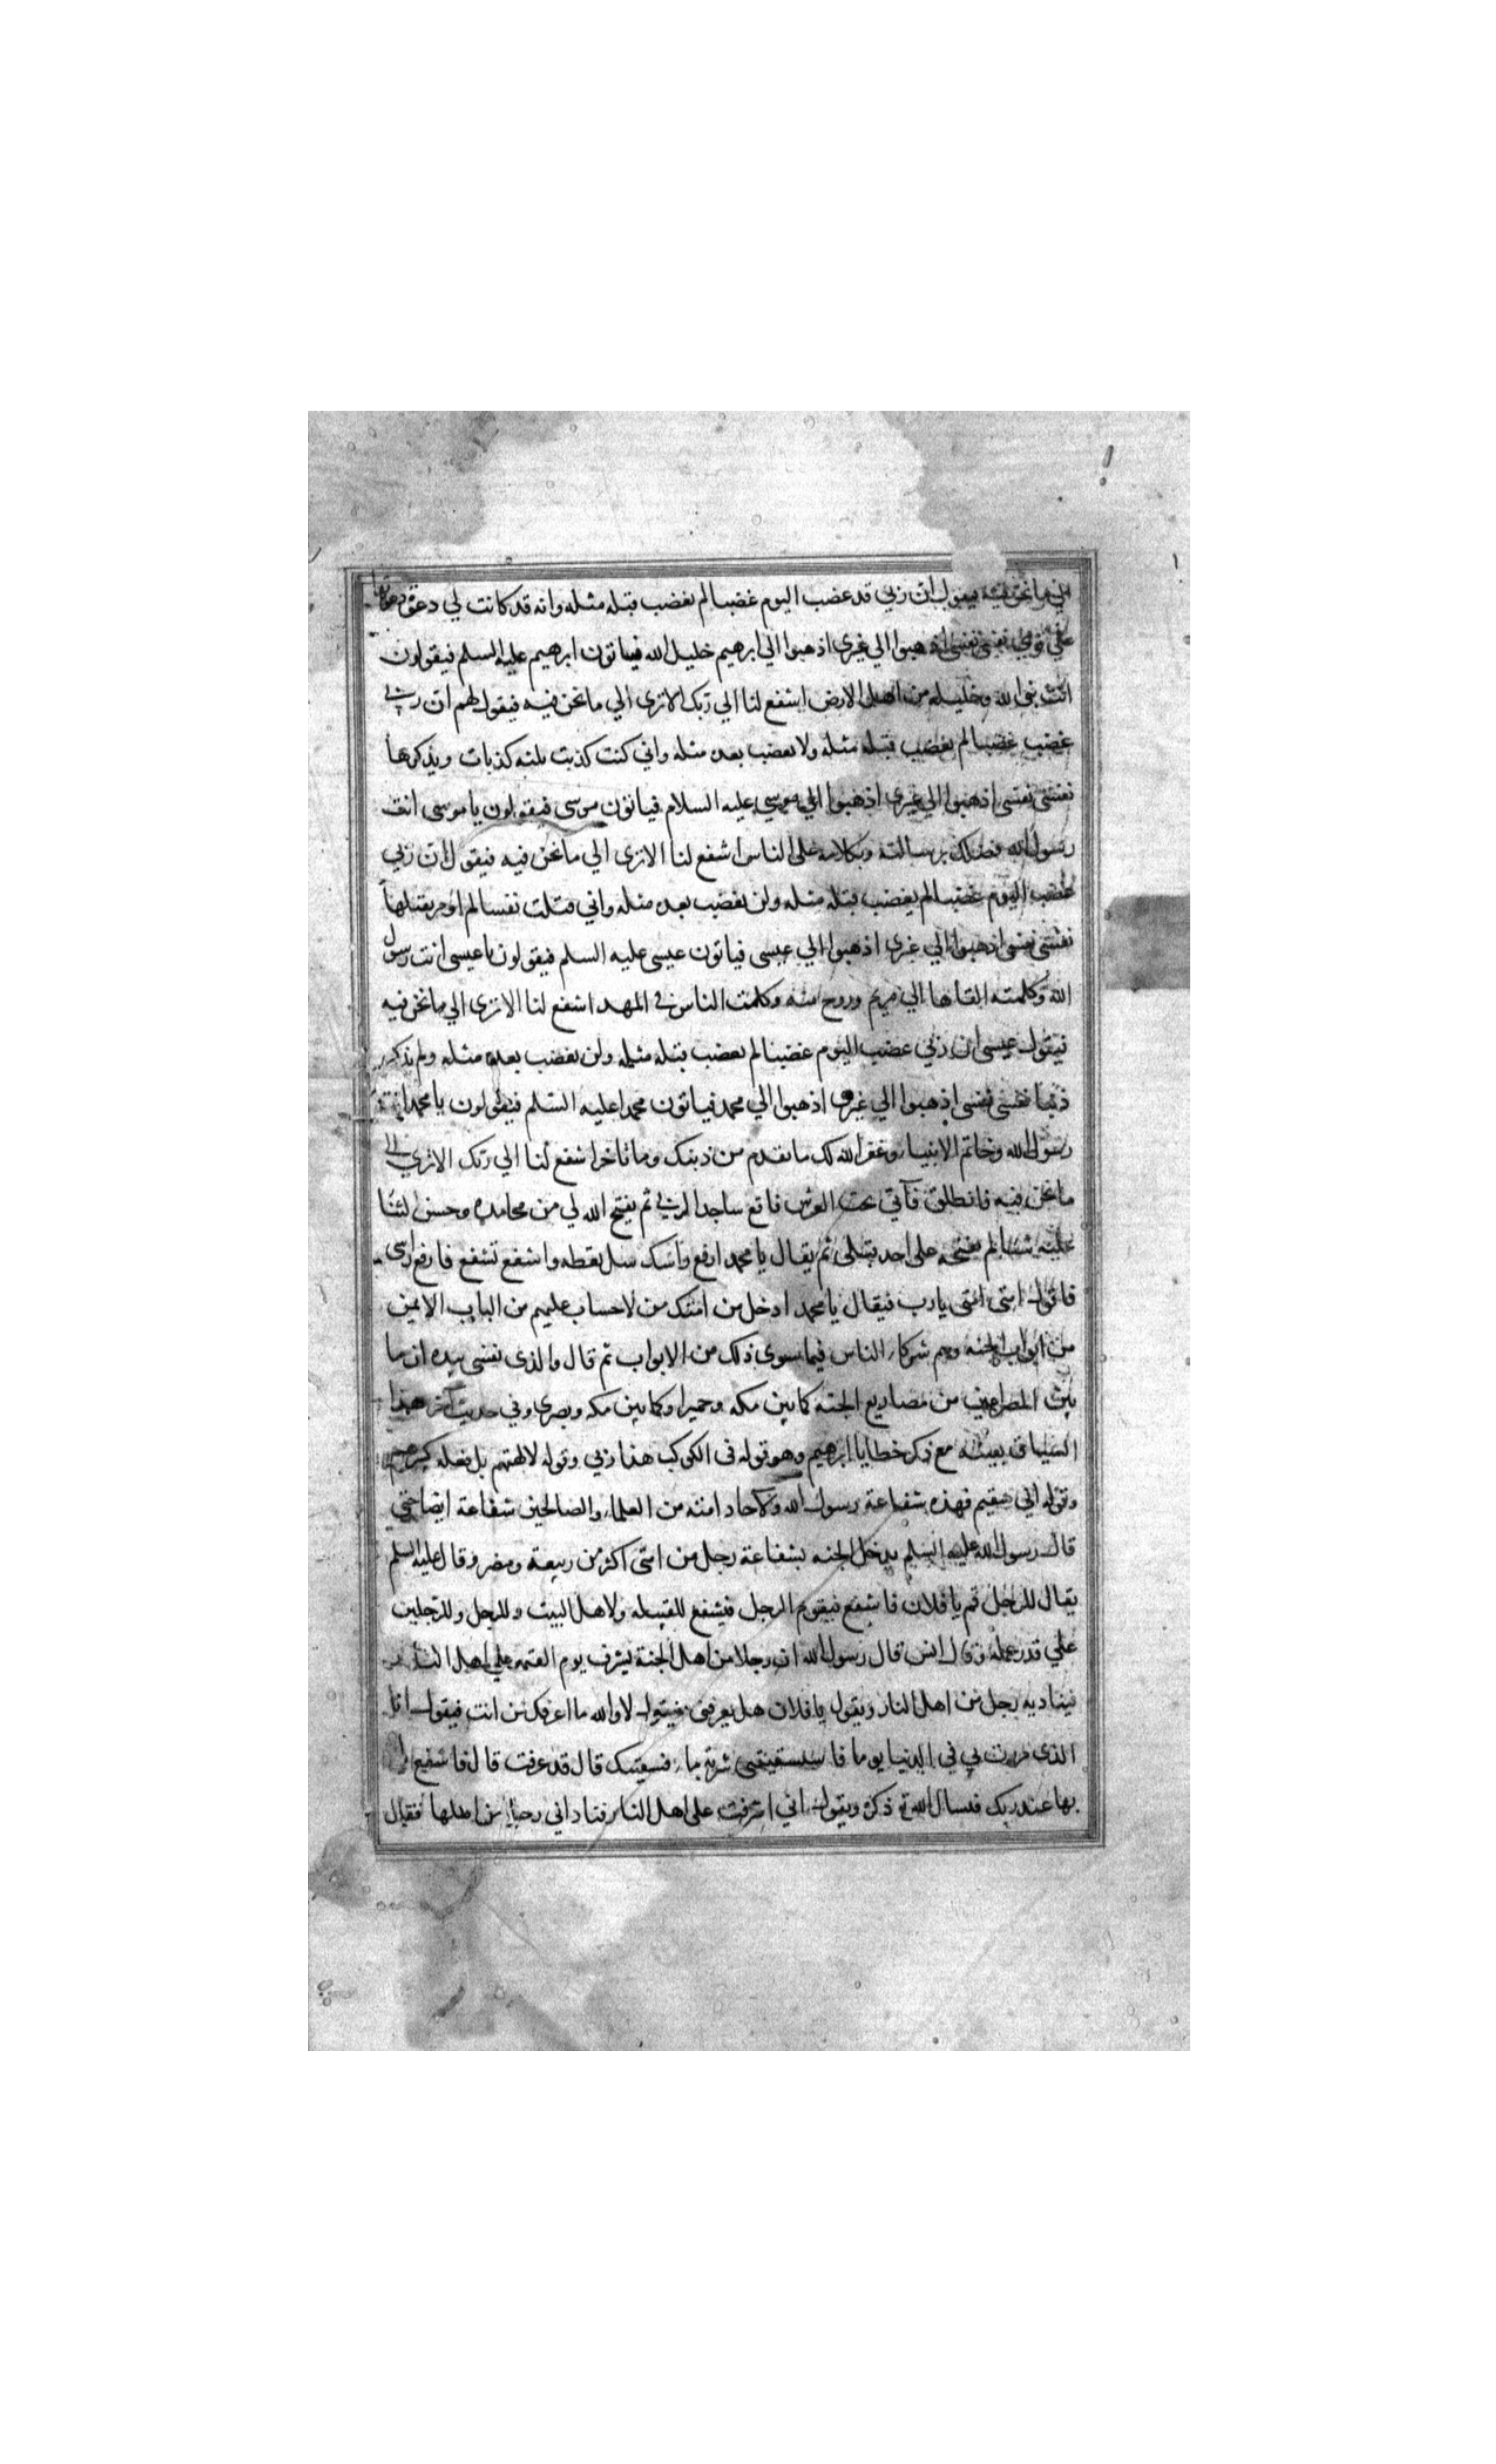 الي ما نحن فيه فيقول ان ربي قد غضب اليوم غضبا لم يغضب قبله مثله وانه قد كانت لي دعوة دعوتها
علي قومي نفسي نفسي اذهبوا الي غيري اذهبوا الي ابرهيم خليل الله فياتون ابرهيم عليه السلم فيقولون
انت نبي الله وخليله من اهل الارض اشفع لنا الي ربك الا تري الي ما نحن فيه فيقول لهم ان ربي
غضب غضبا لم يغضب قبله مثله ولا يغضب بعده مثله واني كنت كذبت ثلثه كذبات ويذكرها
نفسي نفسي اذهبوا الي غيري اذهبوا الي موسي عليه السلام فياتون موسي فيقولون يا موسي انت
رسول الله فضلك برسالته وبكلامه علي الناس اشفع لنا الا تري الي ما نحن فيه فيقول ان ربي
غضب اليوم غضبا لم يغضب قبله مثله ولن يغضب بعده مثله واني قتلت نفسا لم اومر بقتلها
نفسي نفسي اذهبوا الي غيري اذهبوا الي عيسي فياتون عيسي عليه السلم فيقولون يا عيسي انت رسول
الله وكلمته القاها الي مريم وروح منه وكلمت الناس في المهد اشفع لنا الا تري الي ما نحن فيه
فيقول عيسي ان ربي غضب اليوم غضبا لم يغضب قبله مثله ولن يغضب بعده مثله ولم يذكر
ذنبا نفسي نفسي اذهبوا الي غيري اذهبوا الي محمد فياتون محمدا عليه السلم فيقولون يا محمد انت
رسول الله وخاتم الانبياء وغفر الله لك ما تقدم من ذنبك وما تاخر اشفع لنا الي ربك الا تري الي
ما نحن فيه فانطلق فآتي تحت العرش فاقع ساجدا لربي ثم يفتح الله لي من محامده وحسن الثنا
عليه شيئا لم يفتحه علي احد قبلي ثم يقال يا محمد ارفع راسك سل تعطه واشفع تشفع فارفع راسي
فاقول امتي امتي يارب فيقال يا محمد ادخل من امتك من لا حساب عليهم من الباب الايمن
من ابواب الجنه وهم شركاء الناس فيما سوي ذلك من الابواب ثم قال والذي نفسي بيده ان ما
بين المصراعين من مصاريع الجنه كما بين مكه وحمير او كما بين مكه وبصري وفي حديث آخر هذا
السياق بعينه مع ذكر خطايا ابرهيم وهو قوله في الكوكب هذا ربي وقوله لالهتهم بل فعله كبيرهم
وقوله اني سقيم فهذه شفاعة رسول الله ولآحاد امته من العلماء والصالحين شفاعة ايضا حتي
قال رسول الله عليه السلم يدخل الجنه بشفاعة رجل من امتي اكثر من ربيعة ومضر وقال عليه السلم
يقال للرجل قم يا فلان فاشفع فيقوم الرجل فيشفع للقبيله ولاهل البيت وللرجل وللرجلين
علي قدر عمله وقال انس قال رسول الله ان رجلا من اهل الجنة يشرف يوم القيمه علي اهل النار
فيناديه رجل من اهل النار ويقول يا فلان هل تعرفني فيقول لا والله ما اعرفك من انت فيقول انا
الذي مررت بي في الدنيا يوما فاستسقيتني شربة ماء فسقيتك قال قد عرفت قال فاشفع لي
بها عند ربك فيسال الله تع ذكره ويقول اني اشرفت علي اهل النار فناداني رجل من اهلها فقال